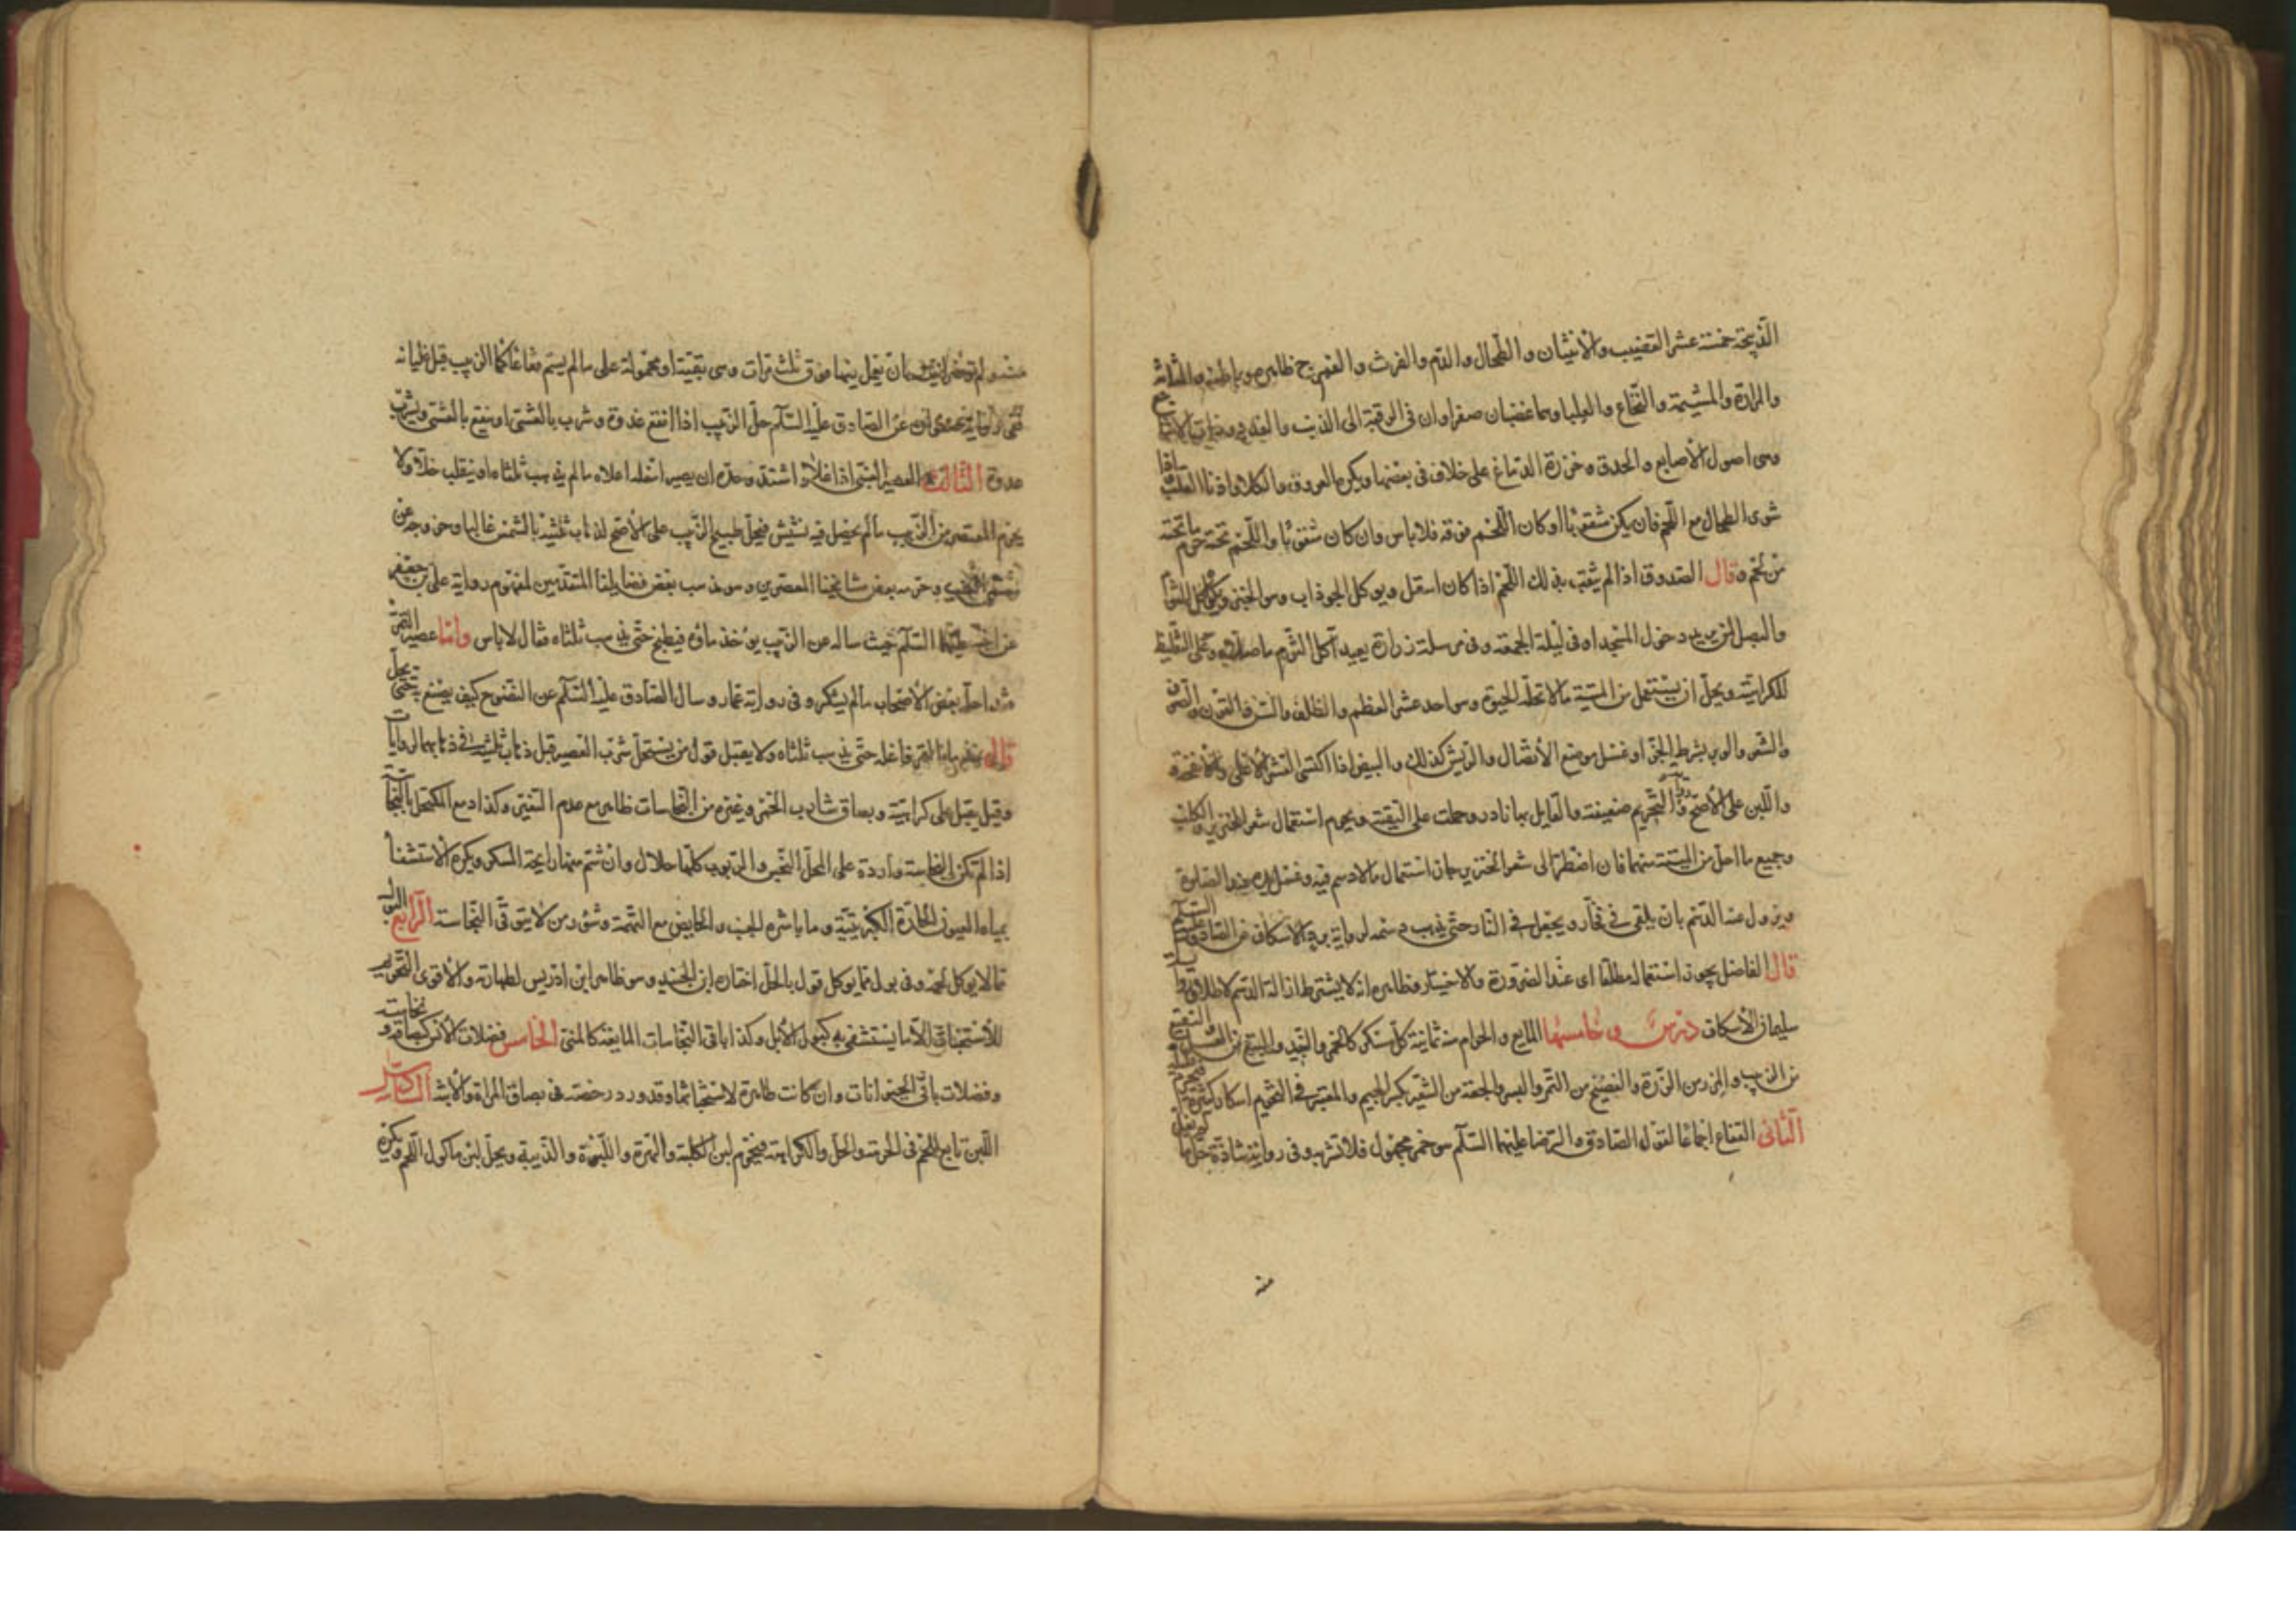 الذبيحة خمسة عشر القضيب والانثيان والطحال والدم والفرث والفرج ظاهره وباطنه والمثانة
والمرارة والمشيمة والنخاع والعلبا وهما عصبان صفراوان فى الرقبة الى الذنب والغدد وذات الاشاجع
وهى اصول الأصابع والحدق وخرزة الدماغ على خلاف فى بعضها ويكره العروق والكلا واذنا القلب واذا
شوى الطحال مع اللحم فان لم يكن مثقوبا او كان اللحم فوقه فلا باس وان كان مثقوبا واللحم تحته حرم ما تحته
من لحم وقال الصدوق اذا لم يثقب يؤكل اللحم اذا كان اسفل ويوكل الجوذاب وهو الخبز ويكره اكل الثوم
والبصل لمن يريد دخول المسجد او فى ليلة الجمعة وفى مرسلة زرارة يعيد آكل الثوم ما صلاه وحمل على التغليظ
للكراهية ويحل ان يستعمل من الميتة مالا تحله الحيوة وهو احد عشر العظم والظلف والسن والقرن والصوف
والشعر والوبر بشرط الجز او غسل موضع الأتصال والريش كذلك والبيض اذا اكتسى القشر الأعلى والأنفحة
واللبن على الأصح ورواية التحريم ضعيفة والقايل بها نادر وحملت على التقية ويحرم استعمال شعر الخنزير والكلب
وجميع ما احل من الميتة منهما فان اضطر الى شعر الخنزير جاز استعمال مالا دسم فيه وغسل يده عند الصلوة
ويزول عنه الدسم بان يلقى فى فخار ويجعل فى النار حتى يذهب دسمه لرواية برد الاسكاف عن الصادق عليه السلام
قال الفاضل يجوز استعماله مطلقا اى عند الضرورة والاختيار وظاهره انه لا يشترط ازالة الدسم لاطلاق رواية
سليمان الأسكاف درس وخامسها المايع والحرام منه ثمانية كل مسكر كالخمر والنبيذ والبتع من العسل والنقيع
من الزبيب والمزر من الذرة والفضيخ من التمر والبسر والجعة من الشعير بكسر الجيم والمعتبر فى التحريم اسكار كثيره فيحرم قليله
الثانى الفقاع اجماعا لقول الصادق والرضا عليهما السلام هو خمر مجهول فلا تشربه وفى رواية شاذة حل ما لم يغل
منه
ان يعمل فيها فوق ثلث مرات وهى بقية او محمولة على ما لم يسم فقاعا كما الزبيب قبل غليانه
ففى رواية عن الصادق عليه السلم حل الزبيب اذا انقع غدوة وشرب بالعشى او ينقع بالعشى ويشرب
غدوة الثالث العصير العنبى اذا غلا واشتد وحده ان يصير اسفله اعلاه ما لم يذهب ثلثاه او ينقلب خلا ولا
يحرم المعتصر من الزبيب ما لم يحصل فيه نشيش فيحل طبيخ الزبيب على الأصح لذهاب ثلثيه بالشمس غالبا وخروجه عن
مسمى العنب وحرمه بعض مشايخنا المعصرين وهو مذهب بعض فضلائنا المتقدمين لمفهوم رواية على بن جعفر
عن اخيه عليهما السلم حيث ساله عن الزبيب يؤخذ ماؤه فيطبخ حتى يذهب ثلثاه فقال لا باس واما عصير التمر
فقد احله بعض الأصحاب ما لم يسكر وفى رواية عمار وسال الصادق عليه السلم عن النضوح كيف يصنع به حتى يحل
قال يغلى ماء التمر حتى يذهب ثلثاه ولا يقبل قول من يستحل شرب العصير قبل ذهاب ثلثيه فى ذهابهما لروايات
وقيل يقبل على كراهية وبصاق شارب الخمر وغيره من النجاسات طاهر مع عدم التغير وكذا دمع المكتحل بالنجاسة
اذا لم تكن النجاسة واردة على المحل النجس والربوب كلها حلال وان شم منها رايحة المسكر ويكره الاستشفا
بمياه العيون الحارة الكبريتية وما باشره الجنب والحايض مع التهمة وسؤر من لا يتوقى النجاسة الرابع البول
مما لا يوكل لحمه وفى بول ما يوكل قول بالحل اختاره ابن الجنيد وهو ظاهر ابن ادريس لطهارته والأقوى التحريم
للأستخباث الا ما يستشفى به كبول الأبل وكذا باقى النجاسات المايعة كالمنى الخامس فضلات الأنسان كبصاقه ونخامته
وفضلات باقى الحيوانات وان كانت طاهرة لاستخباثها وقد ورد رخصة فى بصاق المراة والأبنة السادس
اللبن تابع للحم فى الحرمة والحل والكراهة فيحرم لبن الكلبة والهرة واللبوة والذيبة ويحل لبن ماكول اللحم ويكره